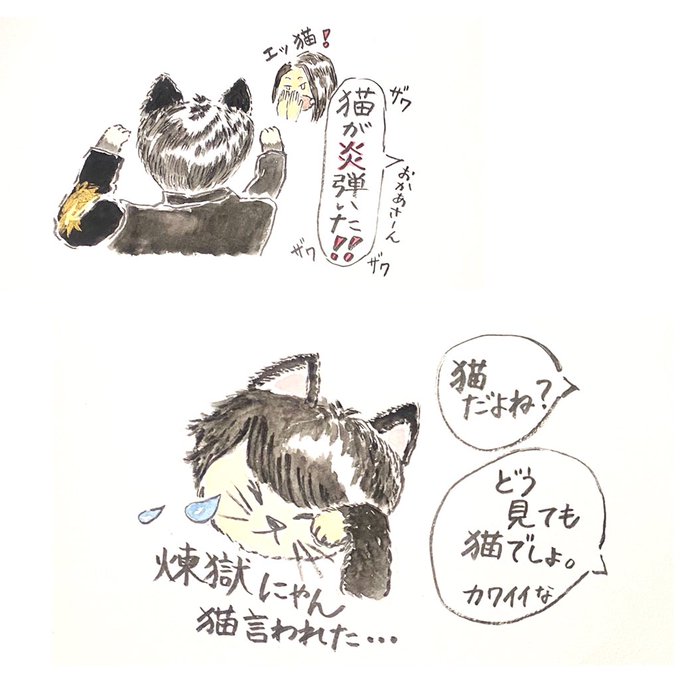 エッ猫!
ザワ
猫が炎弾いた!!
おかあさーん
ザワ
ザワ
猫
だよね?
どう
見ても
猫でしょ。
カワイイな
煉獄にゃん
猫言われた・・・